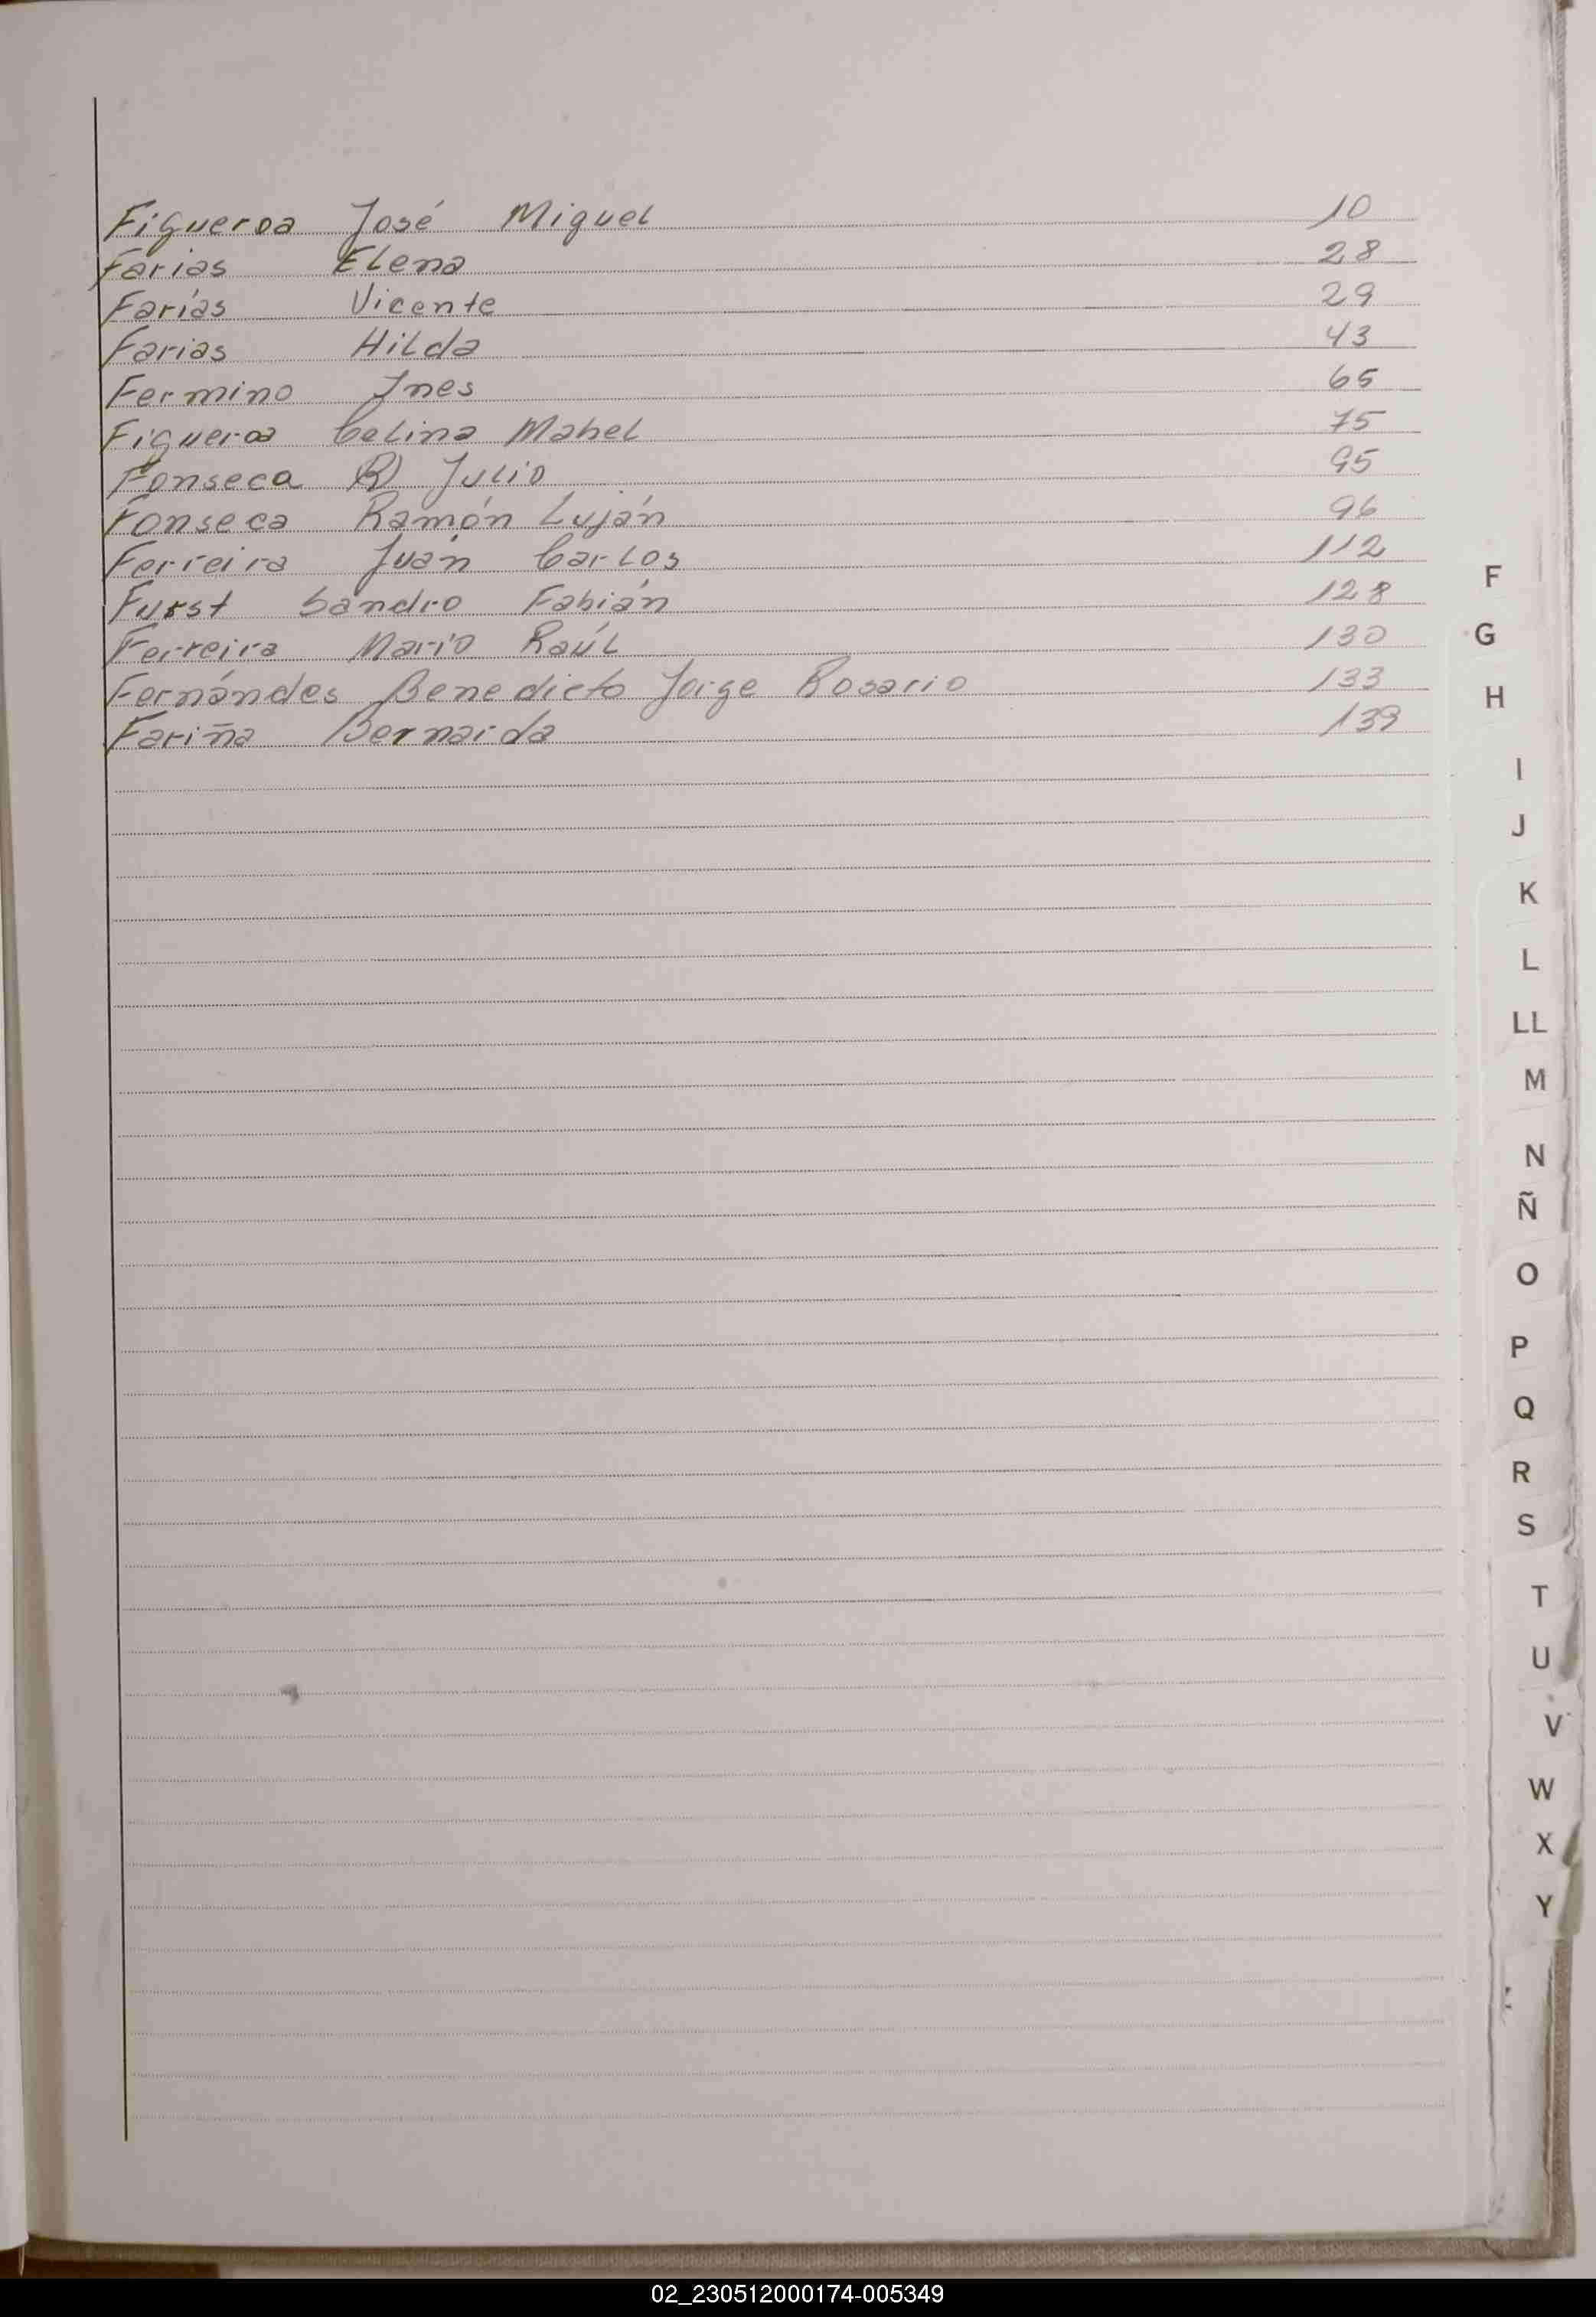 Figueroa José Miguel 10
Farias Elena 28
Farías Vicente 29
Farias Hilda 43
Fermino Ines 65
Figueroa Celina Mabel 75
Fonseca Julio 95
Fonseca Ramón Luján 96
Ferreira Juan Carlos 112
Furst Sandro Fabián 128
Ferreira Mario Raúl 130
Fernándes Benedicto Jorge Rosario 133
Fariña Bernarda 139
F
G
H
I
J
K
L
LL
M
N
Ñ
O
P
Q
R
S
T
U
V
W
X
Y
02_230512000174-005349